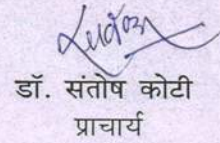 डॉ. संतोष कोटी
प्राचार्य